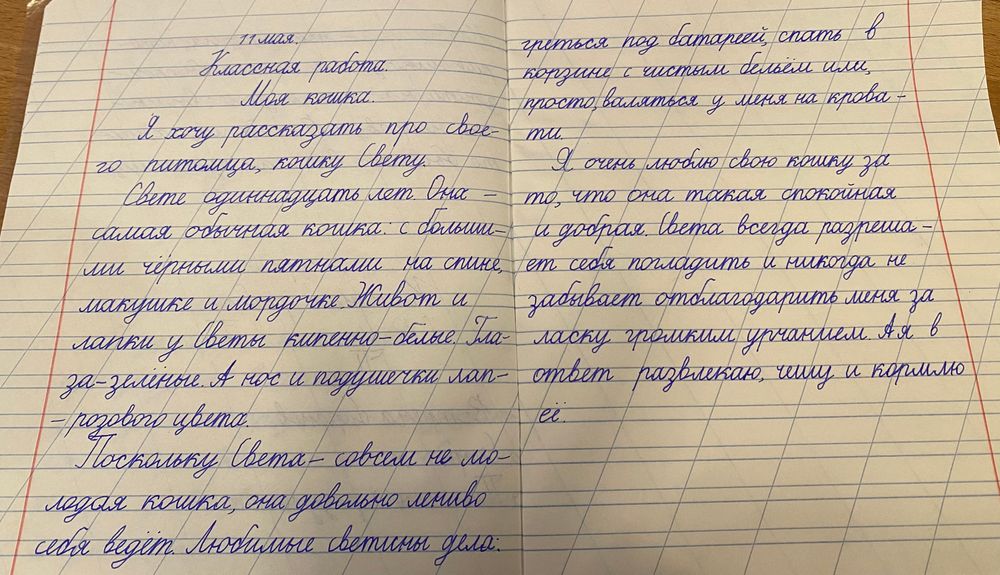 11 мая.
Классная работа.
Моя кошка.
Я хочу рассказать про свое-
го питомца, кошку Свету.
Свете одиннадцать лет. Она –
самая обычная кошка: с больши-
ми чёрными пятнами на спине,
макушке и мордочке. Живот и
лапки у Светы кипенно-белые. Гла-
за-зелёные. А нос и подушечки лап-
- розового цвета.
Поскольку Света – совсем не мо-
лодая кошка, она довольно лениво
себя ведёт. Любимые светины дела:
греться под батареей, спать в
корзине с чистым бельём или,
просто, валяться у меня на крова-
ти.
Я очень люблю свою кошку за
то, что она такая спокойная
и добрая. Света всегда разреша-
ет себя погладить и никогда не
забывает отблагодарить меня за
ласку громким урчанием. А я в
ответ развлекаю, чешу и кормлю
её.